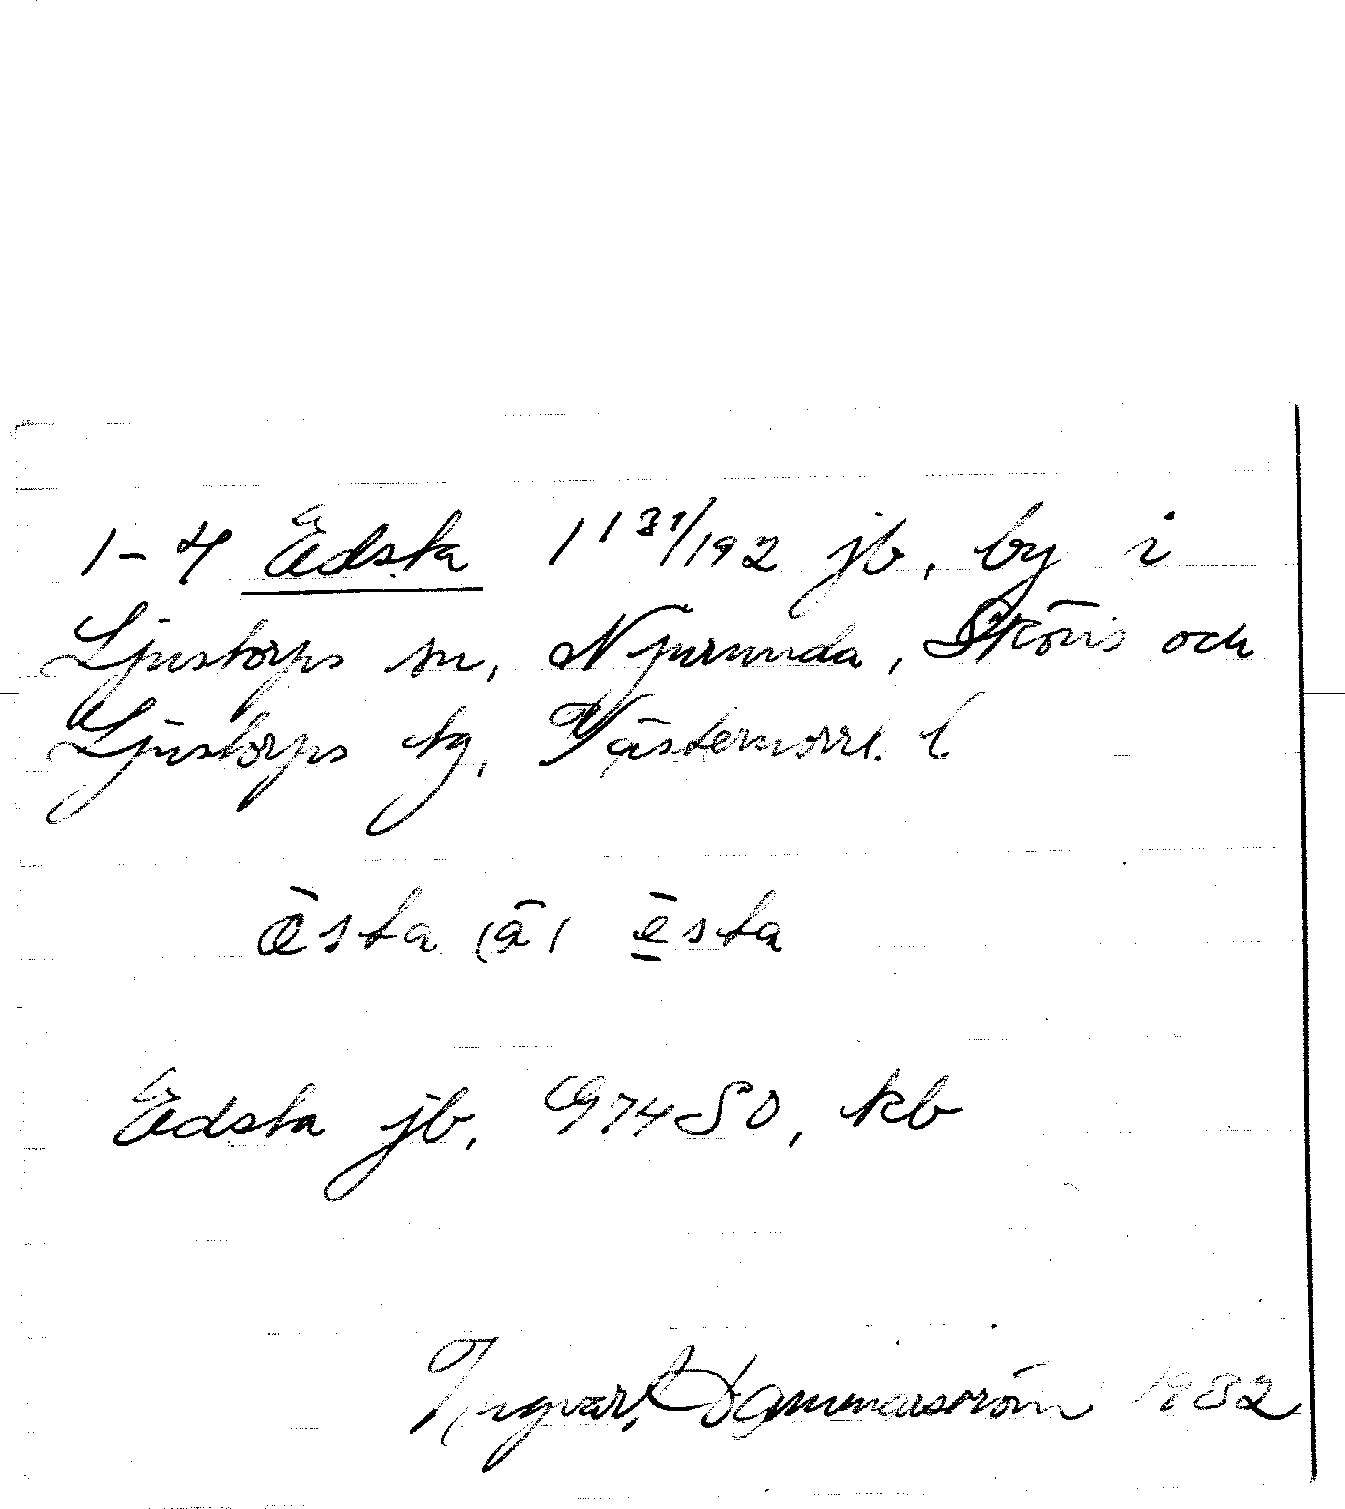 1-4 Edsta 1 131/192 jb, by i
Ljustorps sn, Njurunda, Sköns och
Ljustorps tg, Västernorrl. l
ēsta (ā) ēsta
Edsta jb, G7450, kb
Ingvar Dammarström 1932